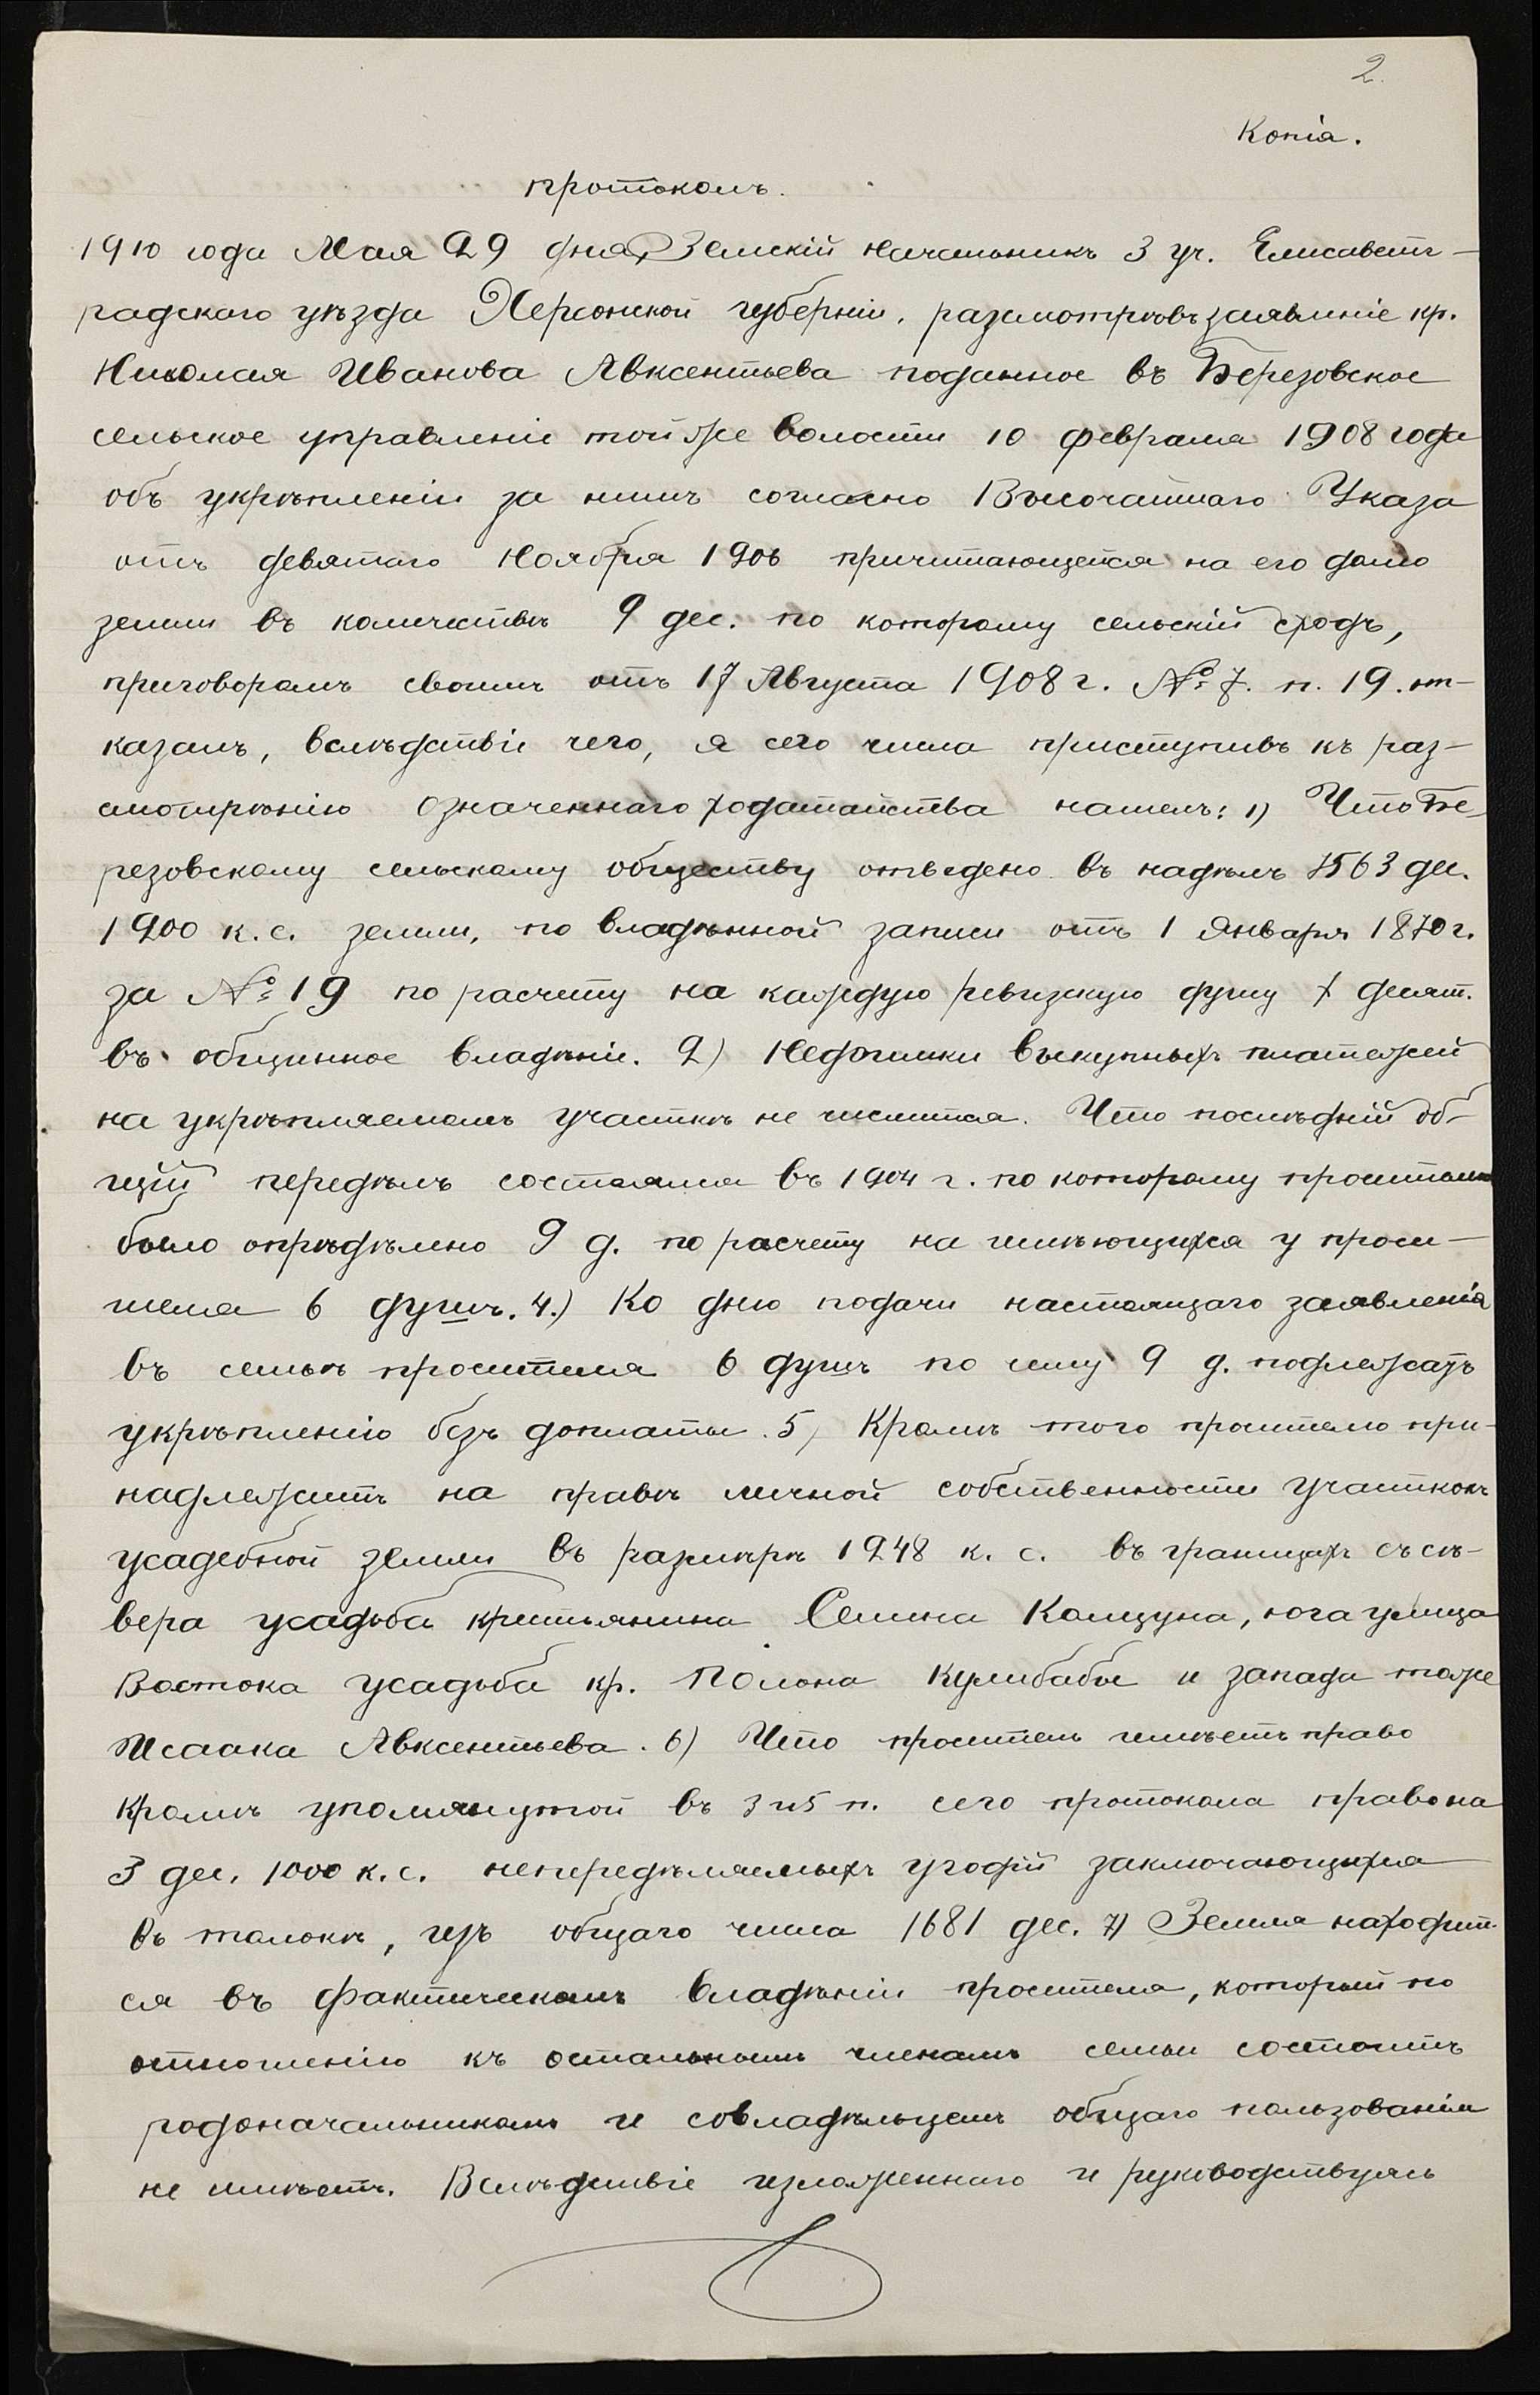 2.
Копія.
протоколъ.
1910 года Мая 29 дня, Земскій Начальникъ 3 уч. Елисавет-
градскаго уѣзда Херсонской губерніи, разсмотрѣвъ заявленіе кр.
Николая Иванова Авксентьева поданное въ Березовское
сельское управленіе той же волости 10 февраля 1908 года
объ укрѣпленіи за нимъ согласно Высочайшаго Указа
отъ девятаго Ноября 1906 причитающейся на его долю
земли въ количествѣ 9 дес. по которому сельскій сходъ,
приговоромъ своимъ отъ 17 Августа 1908 г. № 7. п. 19. от-
казалъ, вслѣдствіе чего, я сего числа приступивъ къ раз-
смотрѣнію означеннаго ходатайства нашелъ: 1) Что Бе-
резовскому сельскому обществу отведено въ надѣлъ 7563 дес.
1200 к. с. земли, по владѣнной записи отъ 1 Января 1870 г.
за № 19 по расчету на каждую ревизскую душу 7 десят.
въ общинное владѣніе. 2) Недоимки выкупныхъ платежей
на укрѣпляемомъ участкѣ не числится. Что послѣдній об-
щій передѣлъ состоялся въ 1904 г. по которому просителю
было опредѣлено 9 д. по расчету на имѣющихся у проси-
теля 6 душъ. 4.) Ко дню подачи настоящаго заявленія
въ семьѣ просителя 6 душъ по чему 9 д. подлежатъ
укрѣпленію безъ доплаты. 5) Кромѣ того просителю при-
надлежитъ на правѣ личной собственности участокъ
усадебной земли въ размѣрѣ 1248 к. с. въ границахъ съ сѣ-
вера усадьба крестьянина Семена Колцуна, юга улица
Востока усадьба кр. Полона Кулибабы и запада тоже
Исаака Авксентьева. 6) Что проситель имѣетъ право
кромѣ упомянутой въ 3 и 5 п. сего протокола право на
3 дес. 1000 к. с. непередѣляемыхъ угодій заключающихся
въ толокѣ, изъ общаго числа 1681 дес. 7) Земля находит-
ся въ фактическомъ владѣніи просителя, который по
отношенію къ остальнымъ членамъ семьи состоитъ
родоначальникомъ и совладѣльцемъ общаго пользованія
не имѣетъ. Вслѣдствіе изложеннаго и руководствуясь